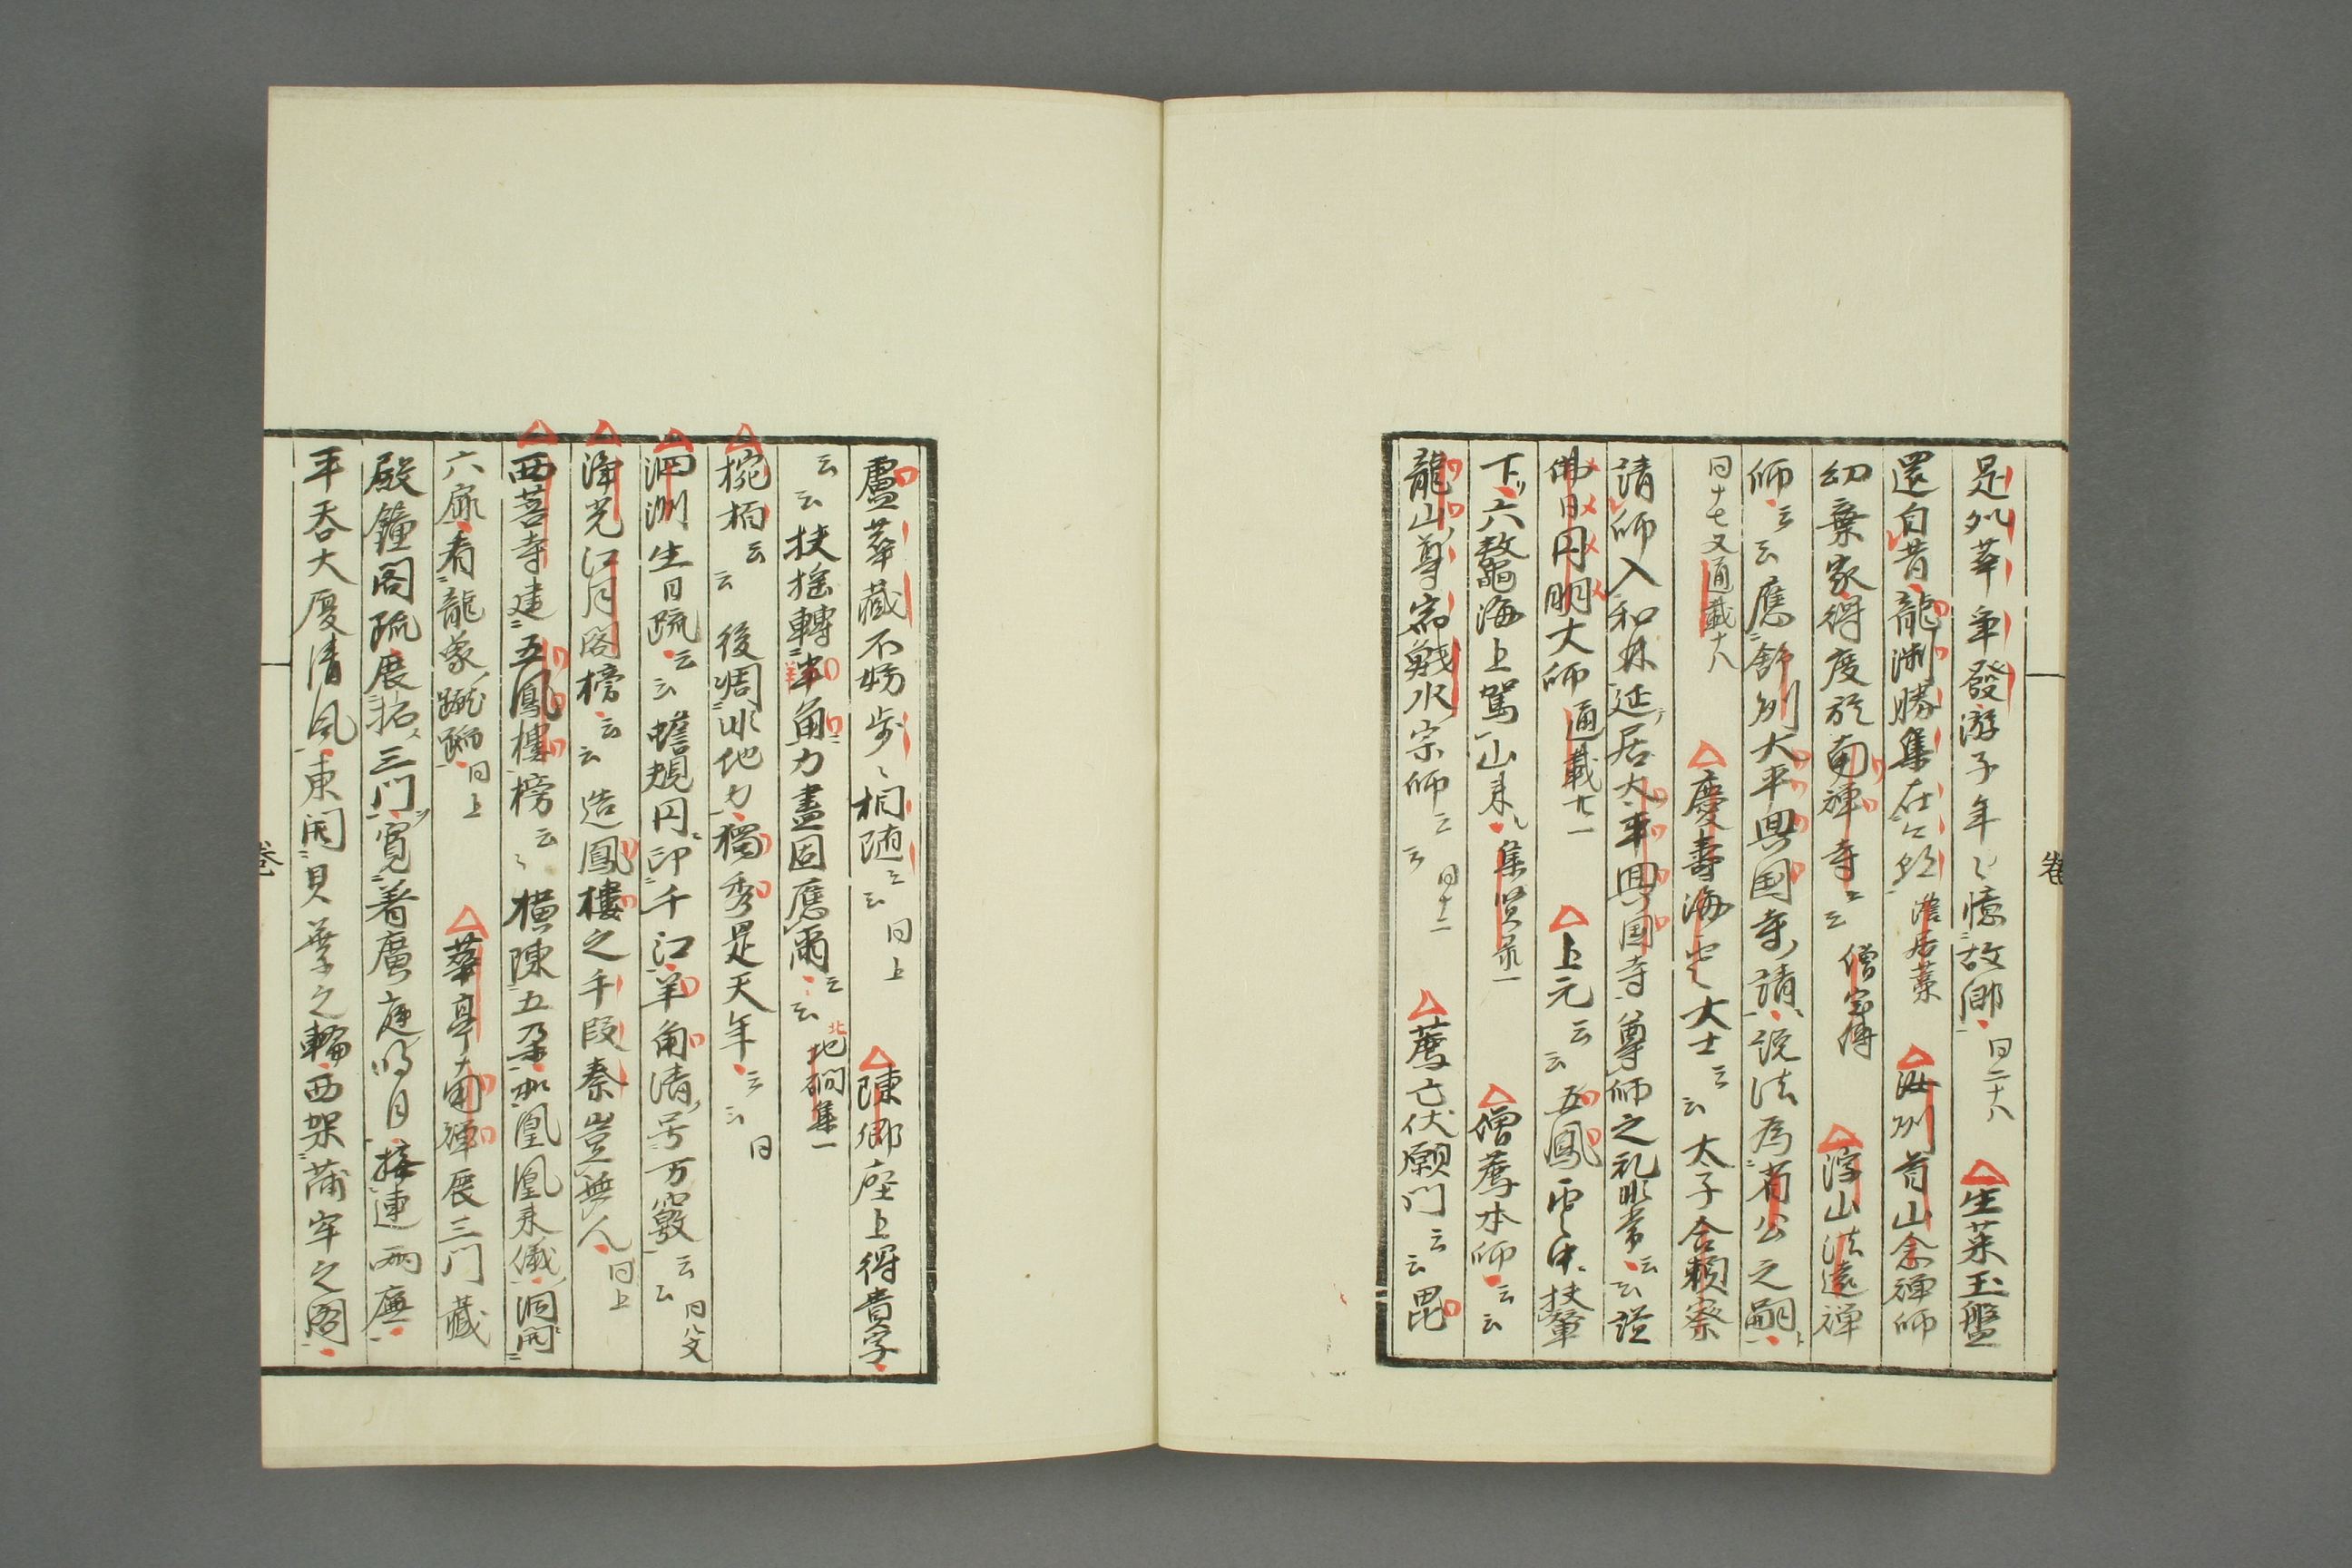 是州華年發游子年々憶故郷 同二十八 生菜玉盤
還自昔龍渕勝集在 澹居藁 汝州首山念禅師
幼棄家得度於南禅寺云云 僧宝傳 浮山法遠禅
師云云應舒州大平興国寺請説法為省公之嗣
同十七又通載十八 慶壽海雲大士云云太子合頼察
請師入和林延居大平興国寺尊師之礼非常云云諡
佛日円明大師 通載廿一 上元云云五鳳雲中扶輦
下六鼇海上駕山来 集 一 僧薦本師云云
龍山尊宿 水宗師云云 同十二 薦亡伏願門云云毘
卷
盧華藏不妨歩々相随云云 同上 陳郷座上得貴字
云云扶揺轉羊角力盡固應爾云云 北磵集一
椀栢云云後凋非地力獨秀是天年云云 同
泗洲生日疏云云蟾規円印千江羊角清号万竅云云 同八文
浄光江月閣榜云云造鳳樓之手段秦豈無人 同上
西菩寺建五鳳樓榜云々横陳五朶 凰凰来儀洞開
六扉看龍象蹴蹋 同上 華亭南禅展三門藏
殿鐘閣疏展拓三門寛着廣庭 月接連両廡
平呑大厦清風東開貝葉之輪西架蒲牢之閣
卷